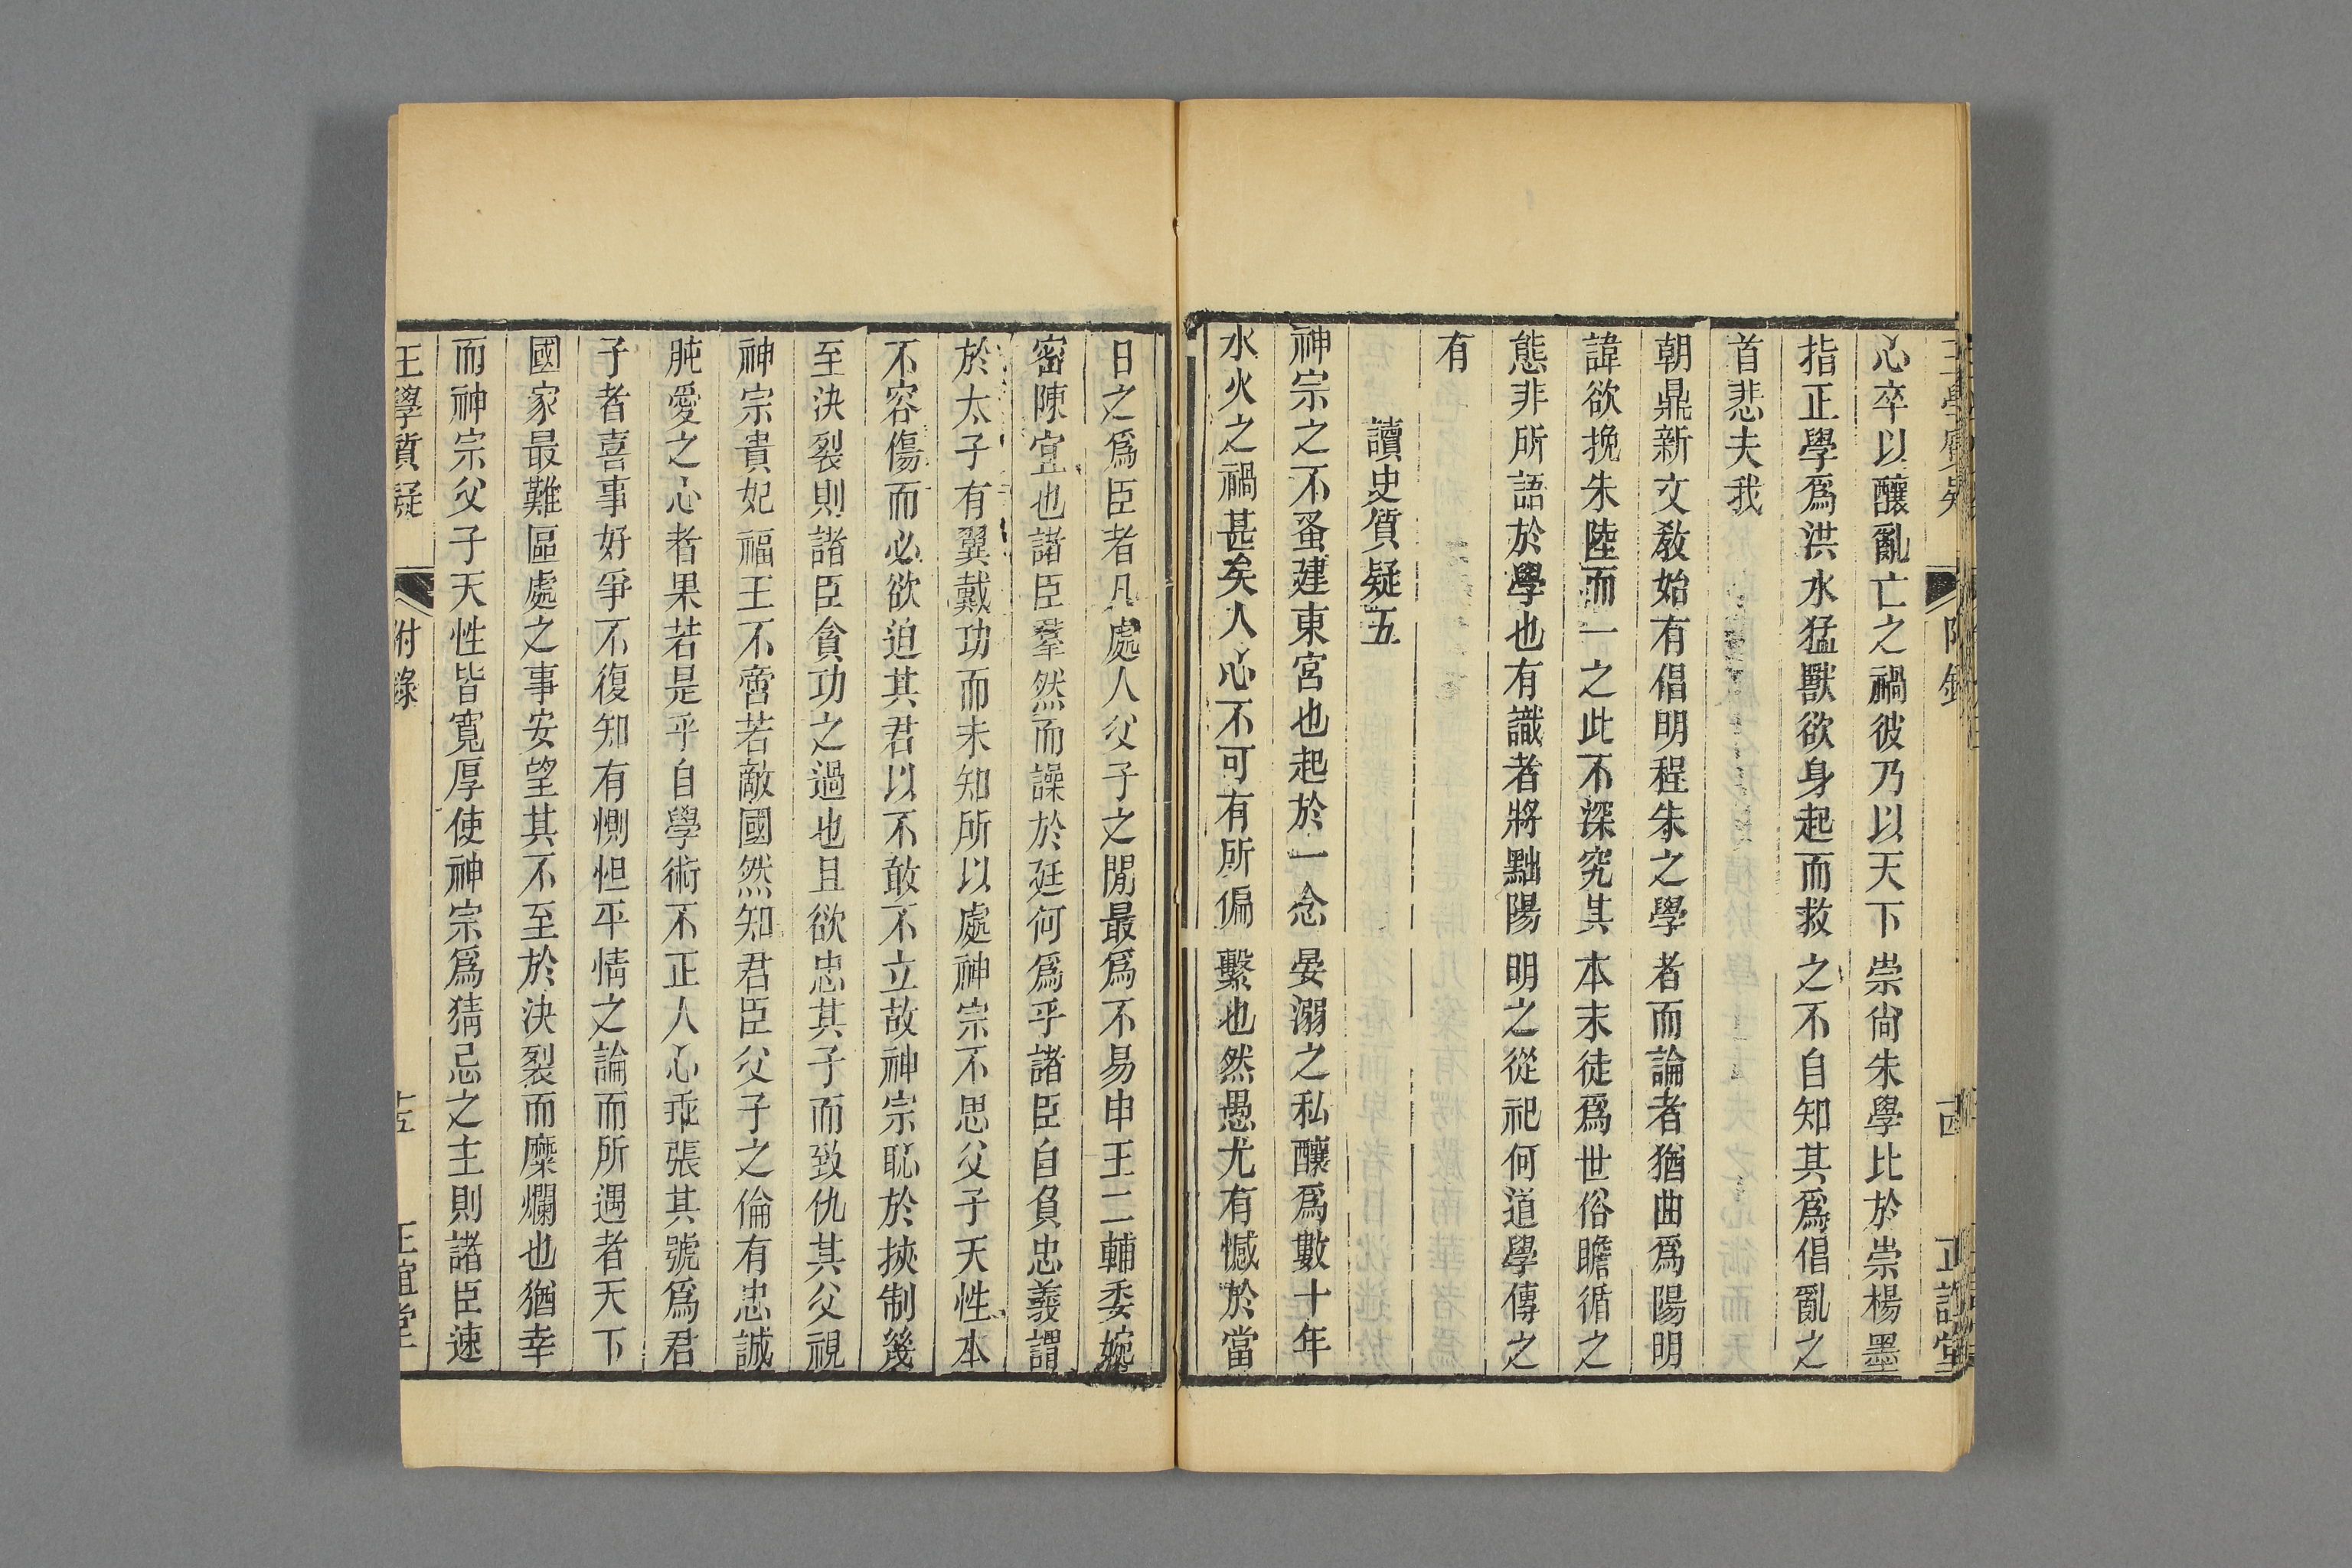 王學質疑 附錄 十四 正誼堂
心卒以釀亂亡之禍彼乃以天下崇尙朱學比於崇楊墨
指正學爲洪水猛獸欲身起而救之不自知其爲倡亂之
首悲夫我
朝鼎新文敎始有倡明程朱之學者而論者猶曲爲陽明
諱欲挽朱陸而一之此不深究其本末徒爲世俗瞻循之
態非所語於學也有識者將黜陽明之從祀何道學傳之
有
讀史質疑五
神宗之不蚤建東宮也起於一念晏溺之私釀爲數十年
水火之禍甚矣人心不可有所偏繫也然愚尤有憾於當
日之爲臣者凡處人父子之閒最爲不易申王二輔委婉
密陳宜也諸臣羣然而譟於廷何爲乎諸臣自負忠義謂
於太子有翼戴功而未知所以處神宗不思父子天性本
不容傷而必欲迫其君以不敢不立故神宗恥於挾制幾
至決裂則諸臣貪功之過也且欲忠其子而致仇其父視
神宗貴妃福王不啻若敵國然知君臣父子之倫有忠誠
肫愛之心者果若是乎自學術不正人心乖張其號爲君
子者喜事好爭不復知有惻怛平情之論而所遇者天下
國家最難區處之事安望其不至於決裂而糜爛也猶幸
而神宗父子天性皆寬厚使神宗爲猜忌之主則諸臣速
王學質疑 附錄 十五 正誼堂